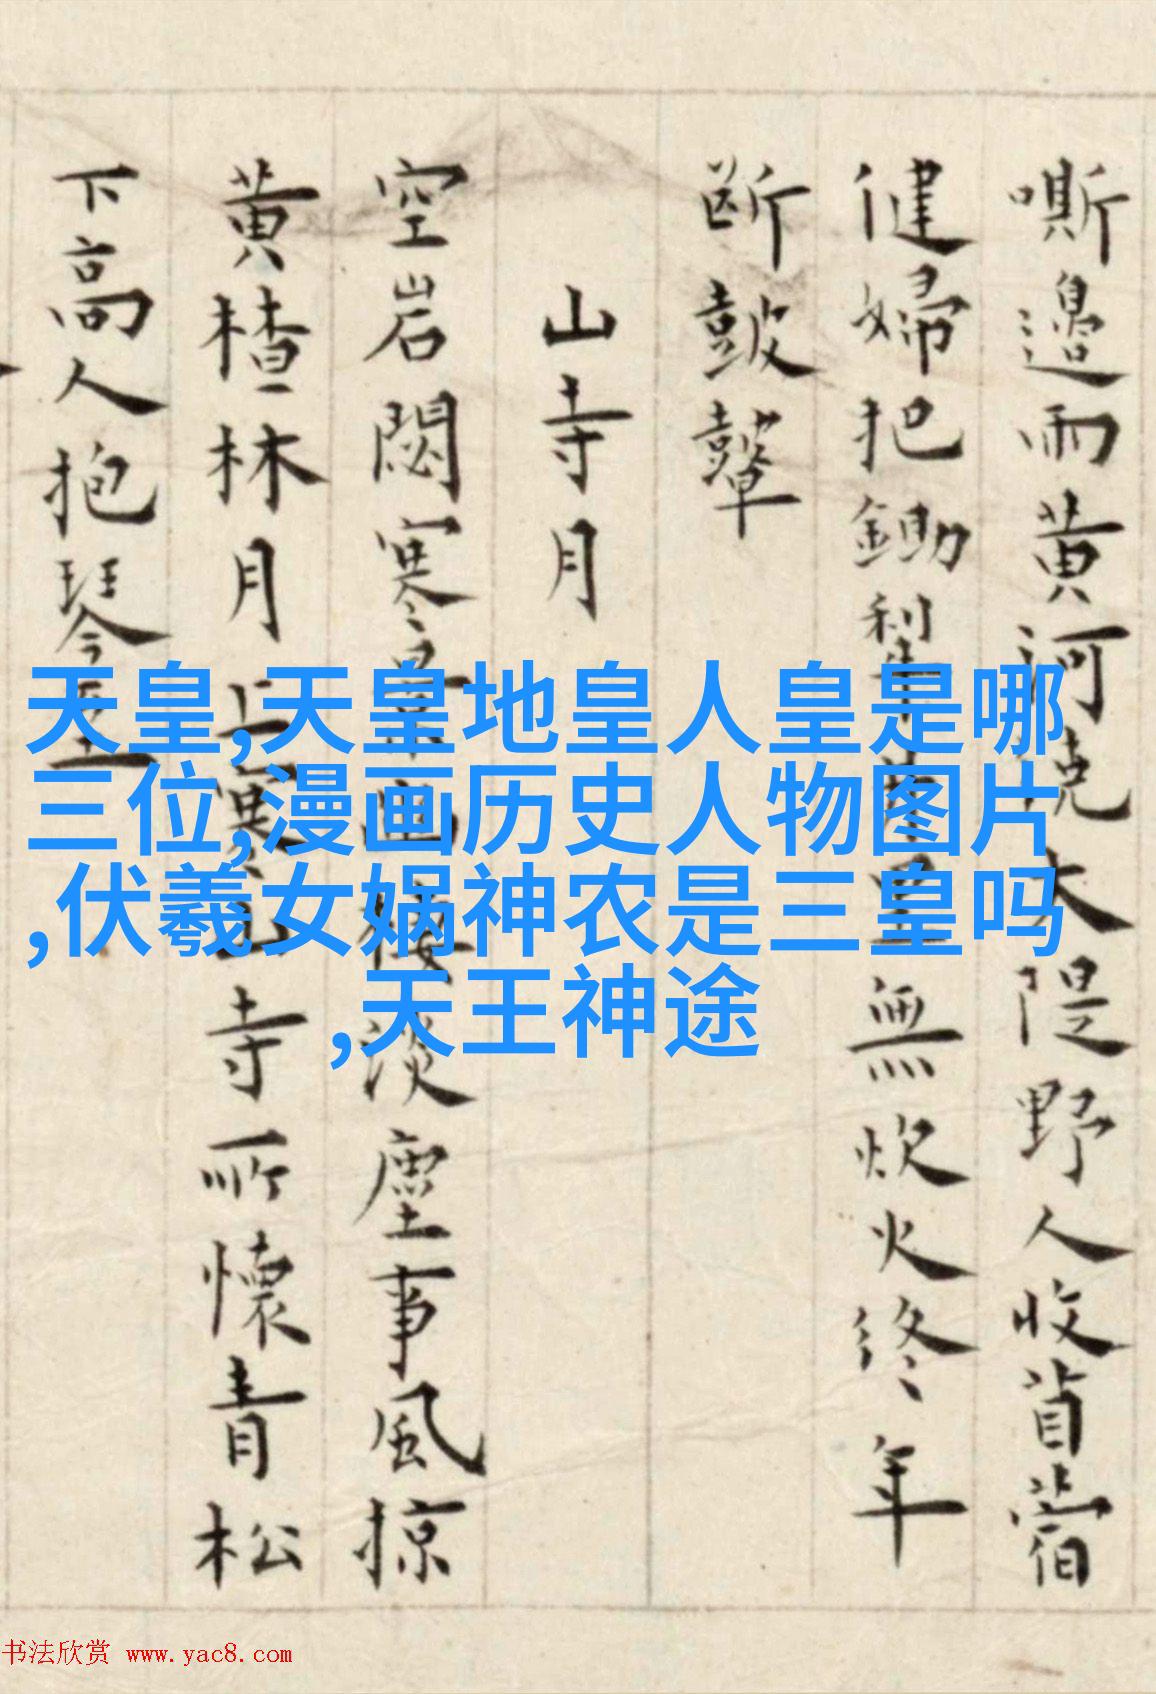 嘶邉雨黄河堯大隄野人收䝉
健婦把鋤犁 無炊火終年
断鼓鼙
山寺月
空岩閟寒 淡塵事風掠
黄楂林月上寒山寺所懷青松
下高人抱琴至
天皇,天皇地皇人皇是哪
三位,漫画历史人物图片
,伏羲女娲神农是三皇吗
,天王神途
书法欣赏 www.yac8.com